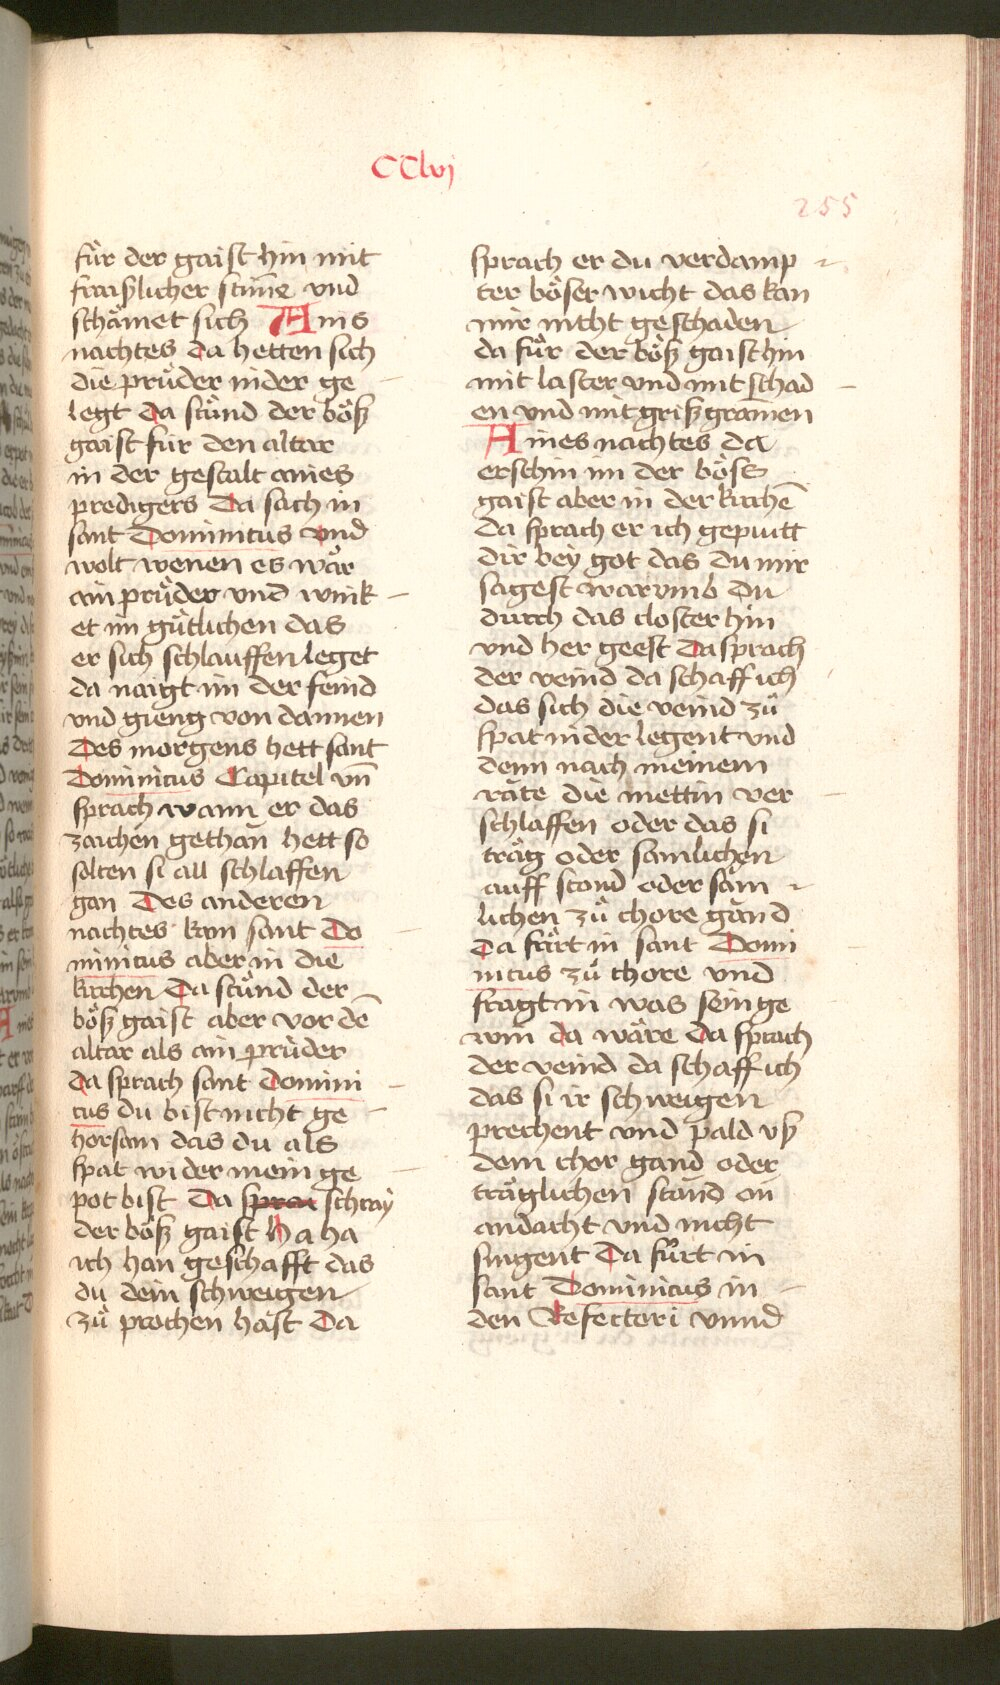 CClvj
255
für der gaist hin mit
fraißlicher stim̄e vnd
schämet sich Ains
nachtes da hetten sich
die prüder nider ge
legt da stůnd der böß
gaist für den altar
in der gestalt aines
predigers Da sach in
sant Dominicus vnd
wolt wenen es wär
ain průder vnd wink
et im gütlichen das
er sich schlauffen leget
da naigt im der feind
vnd gieng von dannen
Des morgens hett sant
Dominicus Capitel vn̄
sprach wann er das
zaichen gethan hett so
solten si all schlaffen
gan Des anderen
nachtes kam sant Do
minicus aber in die
kirchen Da stůnd der
böß gaist aber vor dē
altar als ain průder
da sprach sant Domini
cus du bist nicht ge
horsam das du als
spat wider mein ge
pot bist Da sprau schray
der böß gaist ha ha
ich han geschafft das
du dein schweigen
zů prochen hast Da
sprach er du verdamp
ter böser wicht das kan
mir nicht geschaden
da fůr der böß gaist hin
mit laster vnd mit schad
en vnd mit grißgramen
Aines nachtes da
erschin im der böse
gaist aber in der kirchē
da sprach er ich gepiutt
dir bey got das du mir
sagest warvmb du
durch das closter hin
vnd her geest Da sprach
der veind da schaff ich
das sich die veind zů
spat nider legent vnd
denn nach meinem
räte die mettin ver
schlaffen oder das si
träg oder samlichen
auff stond oder säm
lichen zů chore gänd
da fürt in sant Domi
nicus zů chore vnd
fragt in was sein ge
win da wäre Da sprach
der veind da schaff ich
das si ir schweigen
prechent vnd pald vß
dem chor gand oder
träglichen stand on
andacht vnd nicht
singent Da fůrt in
sant Dominicus in
den Refectori vnnd